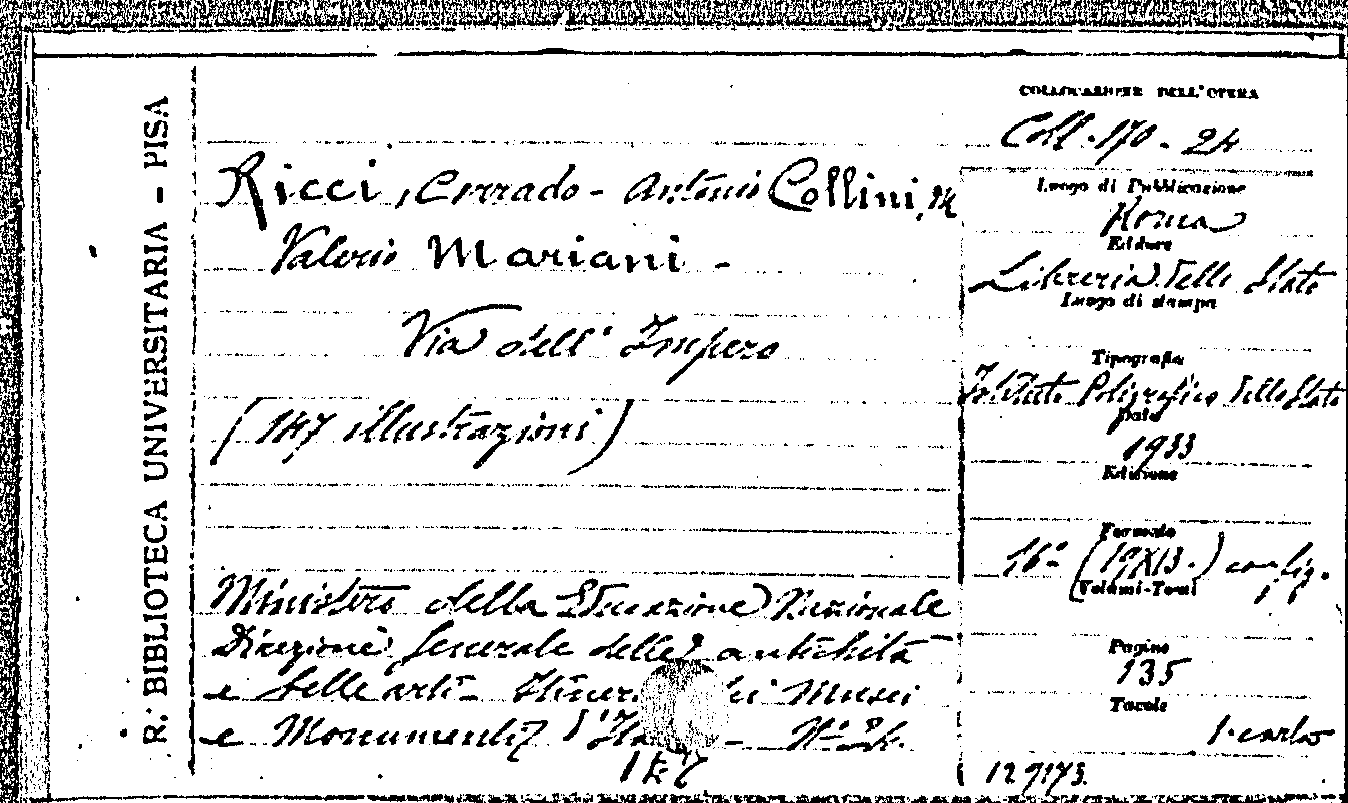 R. BIBLIOTECA UNIVERSITARIA - PISA
COLLOCAZIONE DELL'OPERA
Coll. 170 - 24
Ricci, Corrado - Antonio Collini, e
Valerio Mariani -
Via dell' Impero
(147 illustrazioni)
Ministero della Educazione Nazionale
Direzione Generale delle antichità
e belle arti - Itinerari dei Musei
e Monumenti d'Italia - N. 24.
Luogo di Pubblicazione
Roma
Editore
Libreria dello Stato
Luogo di stampa
Tipografia
Istituto Poligrafico dello Stato
Data
1933
Edizione
Formato
16° (19X13.) con fig.
Volumi-Tomi
Pagine
135
Tavole
1. carta
129173.